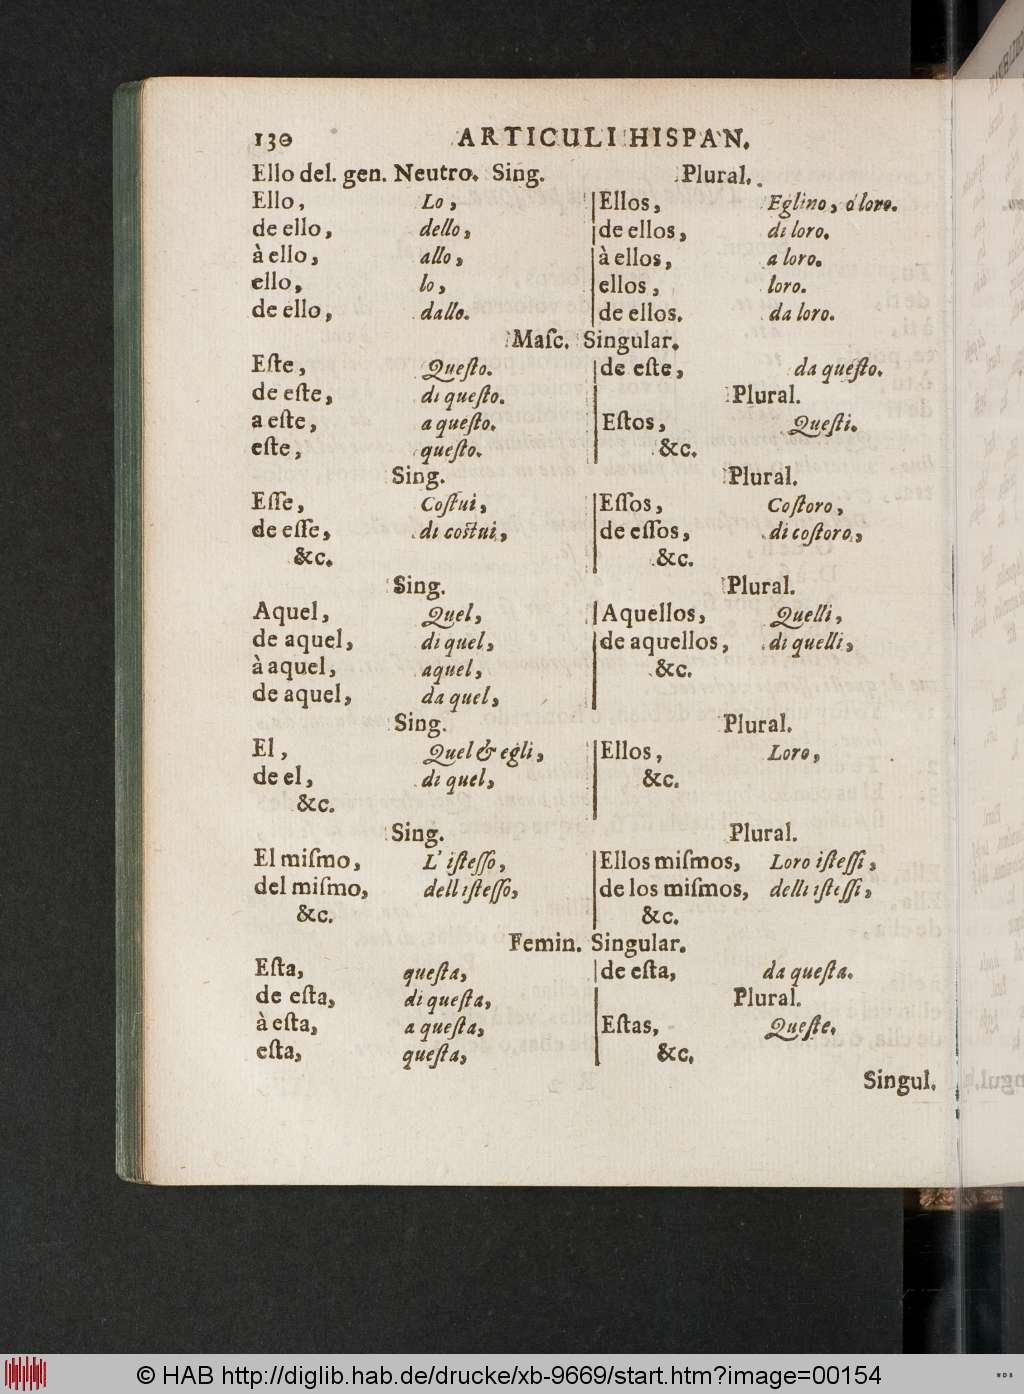 130 ARTICULI HISPAN.
Ello del. gen. Neutro. Sing. Plural.
Ello, Lo, Ellos, Eglino, ò loro.
de ello, dello, de ellos, di loro.
à ello, allo, à ellos, a loro.
ello, lo, ellos, loro.
de ello, dallo. de ellos. da loro.
Maſc. Singular.
Eſte, Queſto. de eſte, da queſto.
de eſte, di queſto. Plural.
a eſte, a queſto. Eſtos, Queſti.
eſte, queſto. &c.
Sing. Plural.
Eſſe, Coſtui, Eſſos, Coſtoro,
de eſſe, di coſtui, de eſſos, di coſtoro,
&c. &c.
Sing. Plural.
Aquel, Quel, Aquellos, Quelli,
de aquel, di quel, de aquellos, di quelli,
à aquel, aquel, &c.
de aquel, da quel,
Sing. Plural.
El, Quel & egli, Ellos, Loro,
de el, di quel, &c.
&c.
Sing. Plural.
El miſmo, L' iſteſſo, Ellos miſmos, Loro iſteſſi,
del miſmo, dell iſteſſo, de los miſmos, delli iſteſſi,
&c. &c.
Femin. Singular.
Eſta, queſta, de eſta, da queſta.
de eſta, di queſta, Plural.
à eſta, a queſta, Eſtas, Queſte.
eſta, queſta, &c.
Singul.
© HAB http://diglib.hab.de/drucke/xb-9669/start.htm?image=00154